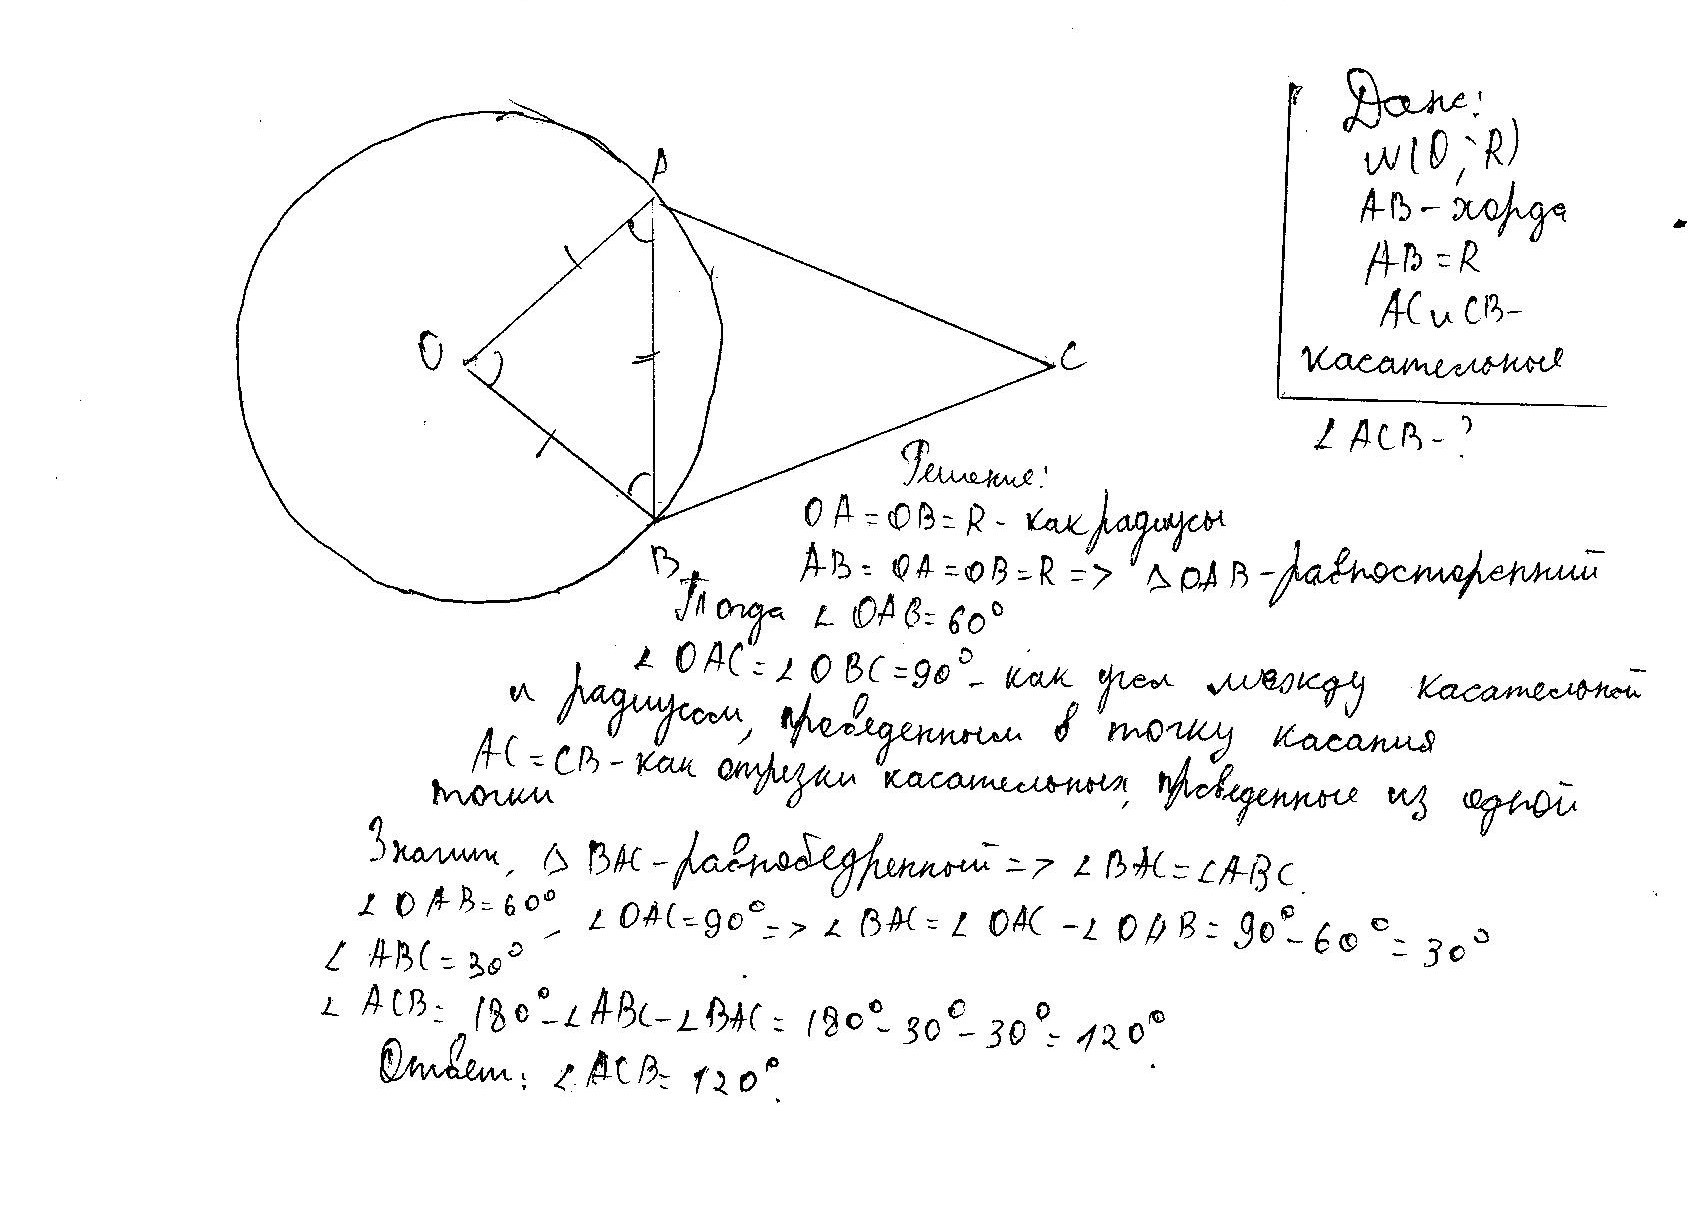 Дано:
W(O; R)
AB - хорда
AB = R
AC и CB -
касательные
∠ACB - ?
A
O
C
B
Решение:
OA = OB = R - как радиусы
AB = OA = OB = R => △OAB - равносторенний
Тогда ∠OAB = 60°
∠OAC = ∠OBC = 90° - как угол между касательной
и радиусом, проведенным в точку касания
AC = CB - как отрезки касательных, проведенные из одной
точки
Значит, △BAC - равнобедренный => ∠BAC = ∠ABC.
∠OAB = 60°, ∠OAC = 90° => ∠BAC = ∠OAC - ∠OAB = 90° - 60° = 30°
∠ABC = 30°
∠ACB = 180° - ∠ABC - ∠BAC = 180° - 30° - 30° = 120°.
Ответ: ∠ACB = 120°.